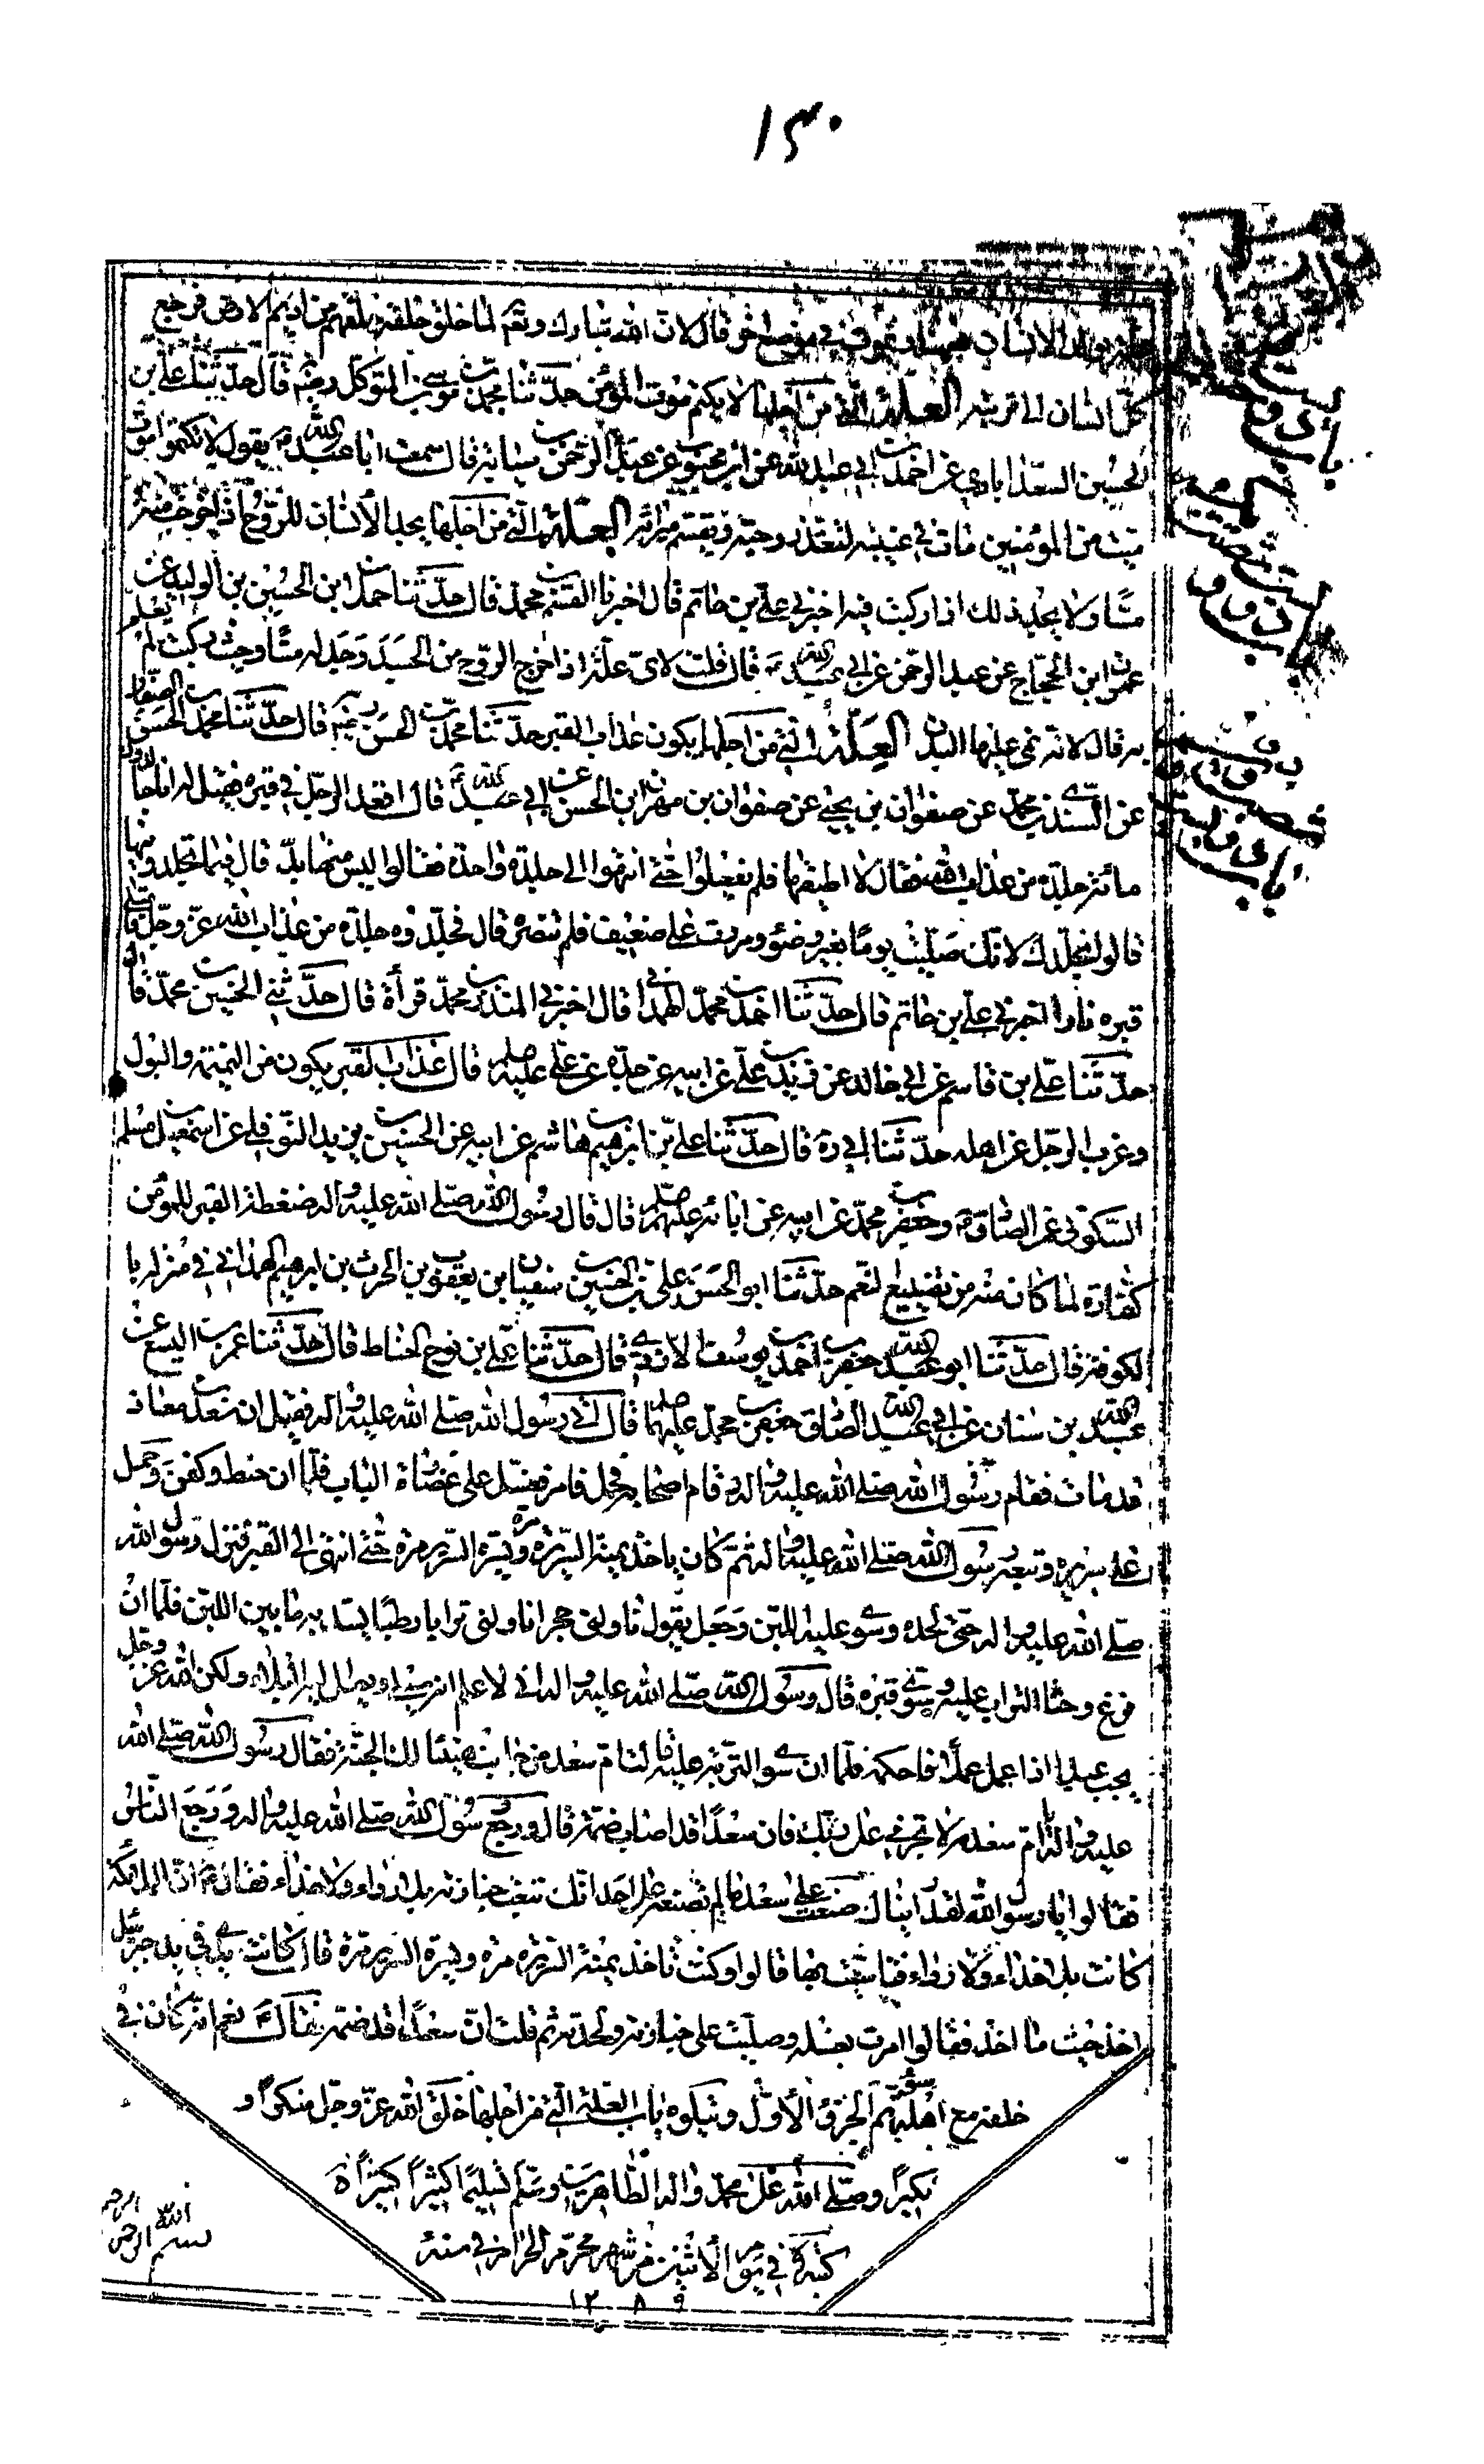 ١٣٠
الانسان ويموت في موضع اخر قال لان الله تبارك وتعم لما خلق خلقه خلقهم من اديم الارض فرجع
كل انسان الى تربته العلة التى من اجلها لا يكتم موت المؤمن حدثنا محمد بن موسى بن المتوكل رضه قال حدثنا على بن
الحسين السعدابادي عن احمد بن ابي عبد الله عن ابن محبوب عن عبد الرحمن بن سيابة قال سمعت ابا عبد الله ع يقول لا تكتموا موت
ميت من المؤمنين مات في غيبته لتعتد زوجته ويقسم ميراثه العلة التى من اجلها يجد الانسان للروح اذا خرجت منه
مسا ولا يجد ذلك اذا ركبت فيه اخبرني على بن حاتم قال اخبرنا القسم بن محمد قال حدثنا حمدان بن الحسين بن الوليد عن
عمران ابن الحجاج عن عبد الرحمن عن ابي عبد الله ع قال قلت لاى علة اذا خرج الروح من الجسد وجد له مسا وحيث ركبت لم يعلم
به قال لانه نمى عليها البدن العلة التى من اجلها يكون عذاب القبر حدثنا محمد بن الحسن رضه قال حدثنا محمد بن الحسن الصفار
عن السندي بن محمد عن صفوان بن يحيى عن صفوان بن مهران ابن الحسن عن ابي عبد الله ع قال اقعد الرجل في قبره فقيل له انا جالدوك
مائة جلدة من عذاب الله فقال لا اطيقها فلم يفعلوا حتى انتهوا الى جلدة واحدة فقالوا ليس منها بد قال فيما تجلدونيها
قالوا نجلدك لانك صليت يوما بغير وضوء ومررت على ضعيف فلم تنصره قال فجلدوه جلدة من عذاب الله عز وجل فامتلى
قبره نارا اخبرني على بن حاتم قال حدثنا احمد بن محمد الهمداني قال اخبرني المنذر بن محمد قرأة قال حدثني الحسين بن محمد قال
حدثنا على بن قاسم عن ابي خالد عن زيد بن على عن ابيه عن جده عن على عليه صلم قال عذاب القبر يكون من النميمة والبول
وعزب الرجل عن اهله حدثنا ابي ره قال حدثنا على بن ابرهيم بن هاشم عن ابيه عن الحسين بن يزيد النوفلى عن اسمعيل بن مسلم
السكوني عن الصادق ع وجعفر بن محمد عن ابيه عن ابائه عليهم صلم قال قال رسول الله صلى الله عليه واله ضغطة القبر للمؤمن
كفارة لما كان منه من تضييع لنعم حدثنا ابو الحسن على بن الحسين بن سفيان ابن يعقوب بن الحرث بن ابرهيم الهمداني في منزله با
لكوفة قال حدثنا ابو عبد الله جعفر بن احمد بن يوسف الازدى قال حدثنا على بن نوح الحناط قال حدثنا عمر بن اليسع عن
عبد الله بن سنان عن ابي عبد الله الصادق جعفر بن محمد عليهما صلم قال اتى رسول الله صلى الله عليه واله فقيل ان سعد بن معاذ
قد مات فقام رسول الله صلى الله عليه واله وقام اصحابه فحمل فامر فغسل على عضادة الباب فلما ان حنط وكفن وحمل
على سريره وتبعه رسول الله صلى الله عليه واله ثم كان ياخذ يمنة السرير مرة ويسرة السرير مرة حتى انتهى الى القبر فنزل رسول الله
صلى الله عليه واله حتى لحده وسوى عليه اللبن وجعل يقول ناولنى حجرا ناولنى ترابا رطبا يسد به ما بين اللبن فلما ان
فرغ وحثا التراب عليه وسوى قبره قال رسول الله صلى الله عليه واله انى لاعلم انه سيبلى ويصل اليه البلاء ولكن الله عز وجل
يحب عبدا اذا عمل عملا فاحكمه فلما ان سوى التربة عليه قالت ام سعد من جانب هنيئا لك الجنة فقال رسول الله صلى الله
عليه واله يا ام سعد مه لا تجزمي على ربك فان سعدا قد اصابه ضمة قال ورجع رسول الله صلى الله عليه واله ورجع الناس
فقالوا يا رسول الله لقد رايناك صنعت على سعد ما لم تصنعه على احد انك تبعت جنازته بلا رداء ولا حذاء فقال ع ان الملائكة
كانت بلا حذاء ولا رداء فتاسيت بها قالوا وكنت تاخذ يمنة السرير مرة ويسرة السرير مرة قال كانت يدى في يد جبرئيل
اخذ حيث ما اخذ فقالوا امرت بغسله وصليت على جنازته ولحدته ثم قلت ان سعدا قد ضمته فقال ع نعم انه كان في
خلقه مع اهله سوء تم الجزو الأول ويتلوه باب العلة التى من اجلها خلق الله عز وجل منكرا و
نكيرا وصلى الله على محمد واله الطاهرين وسلم تسليما كثيرا كثيرا
كتبه في يوم الاثنين من شهر محرم الحرام في سنة
١٢٨٩
بسم الله الرحمن الرحيم